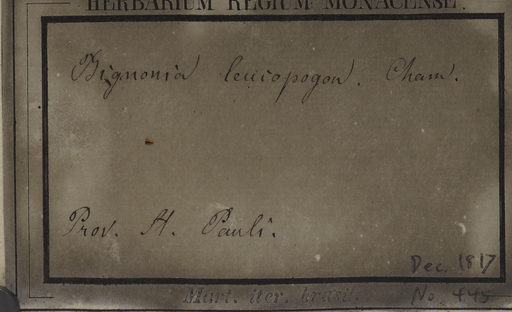 HERBARIUM REGIUM MONACENSE.
Bignonia leucopogon. Cham.
Prov. St. Pauli.
Dec. 1817
Mart. iter. brasil. No. 445